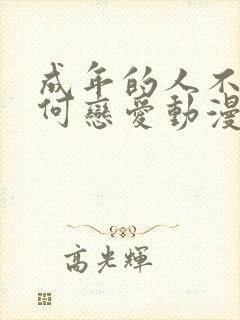 成年的人不
何戀愛動漫
高光輝